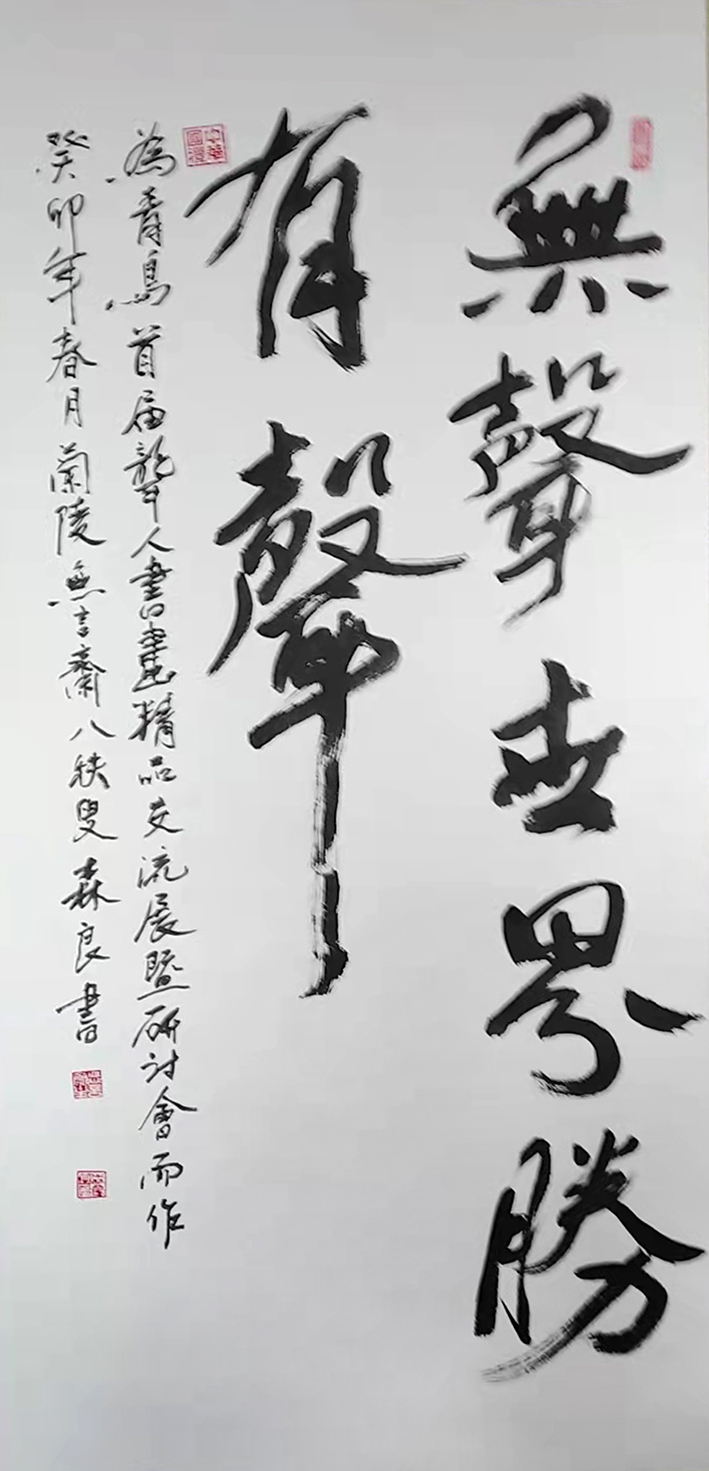 無聲世界勝
有聲
為青鳥首届聾人書畫精品交流展暨研討會而作
癸卯年春月蘭陵無言齋八秩叟森良書